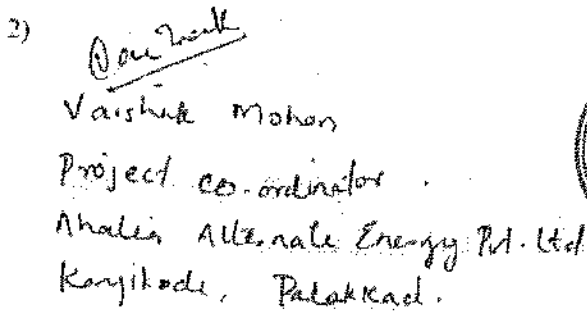 2)
Vaishak Mohan
Project co-ordinator.
Ahalia Alternate Energy Pvt. Ltd
Kanjikode, Palakkad.